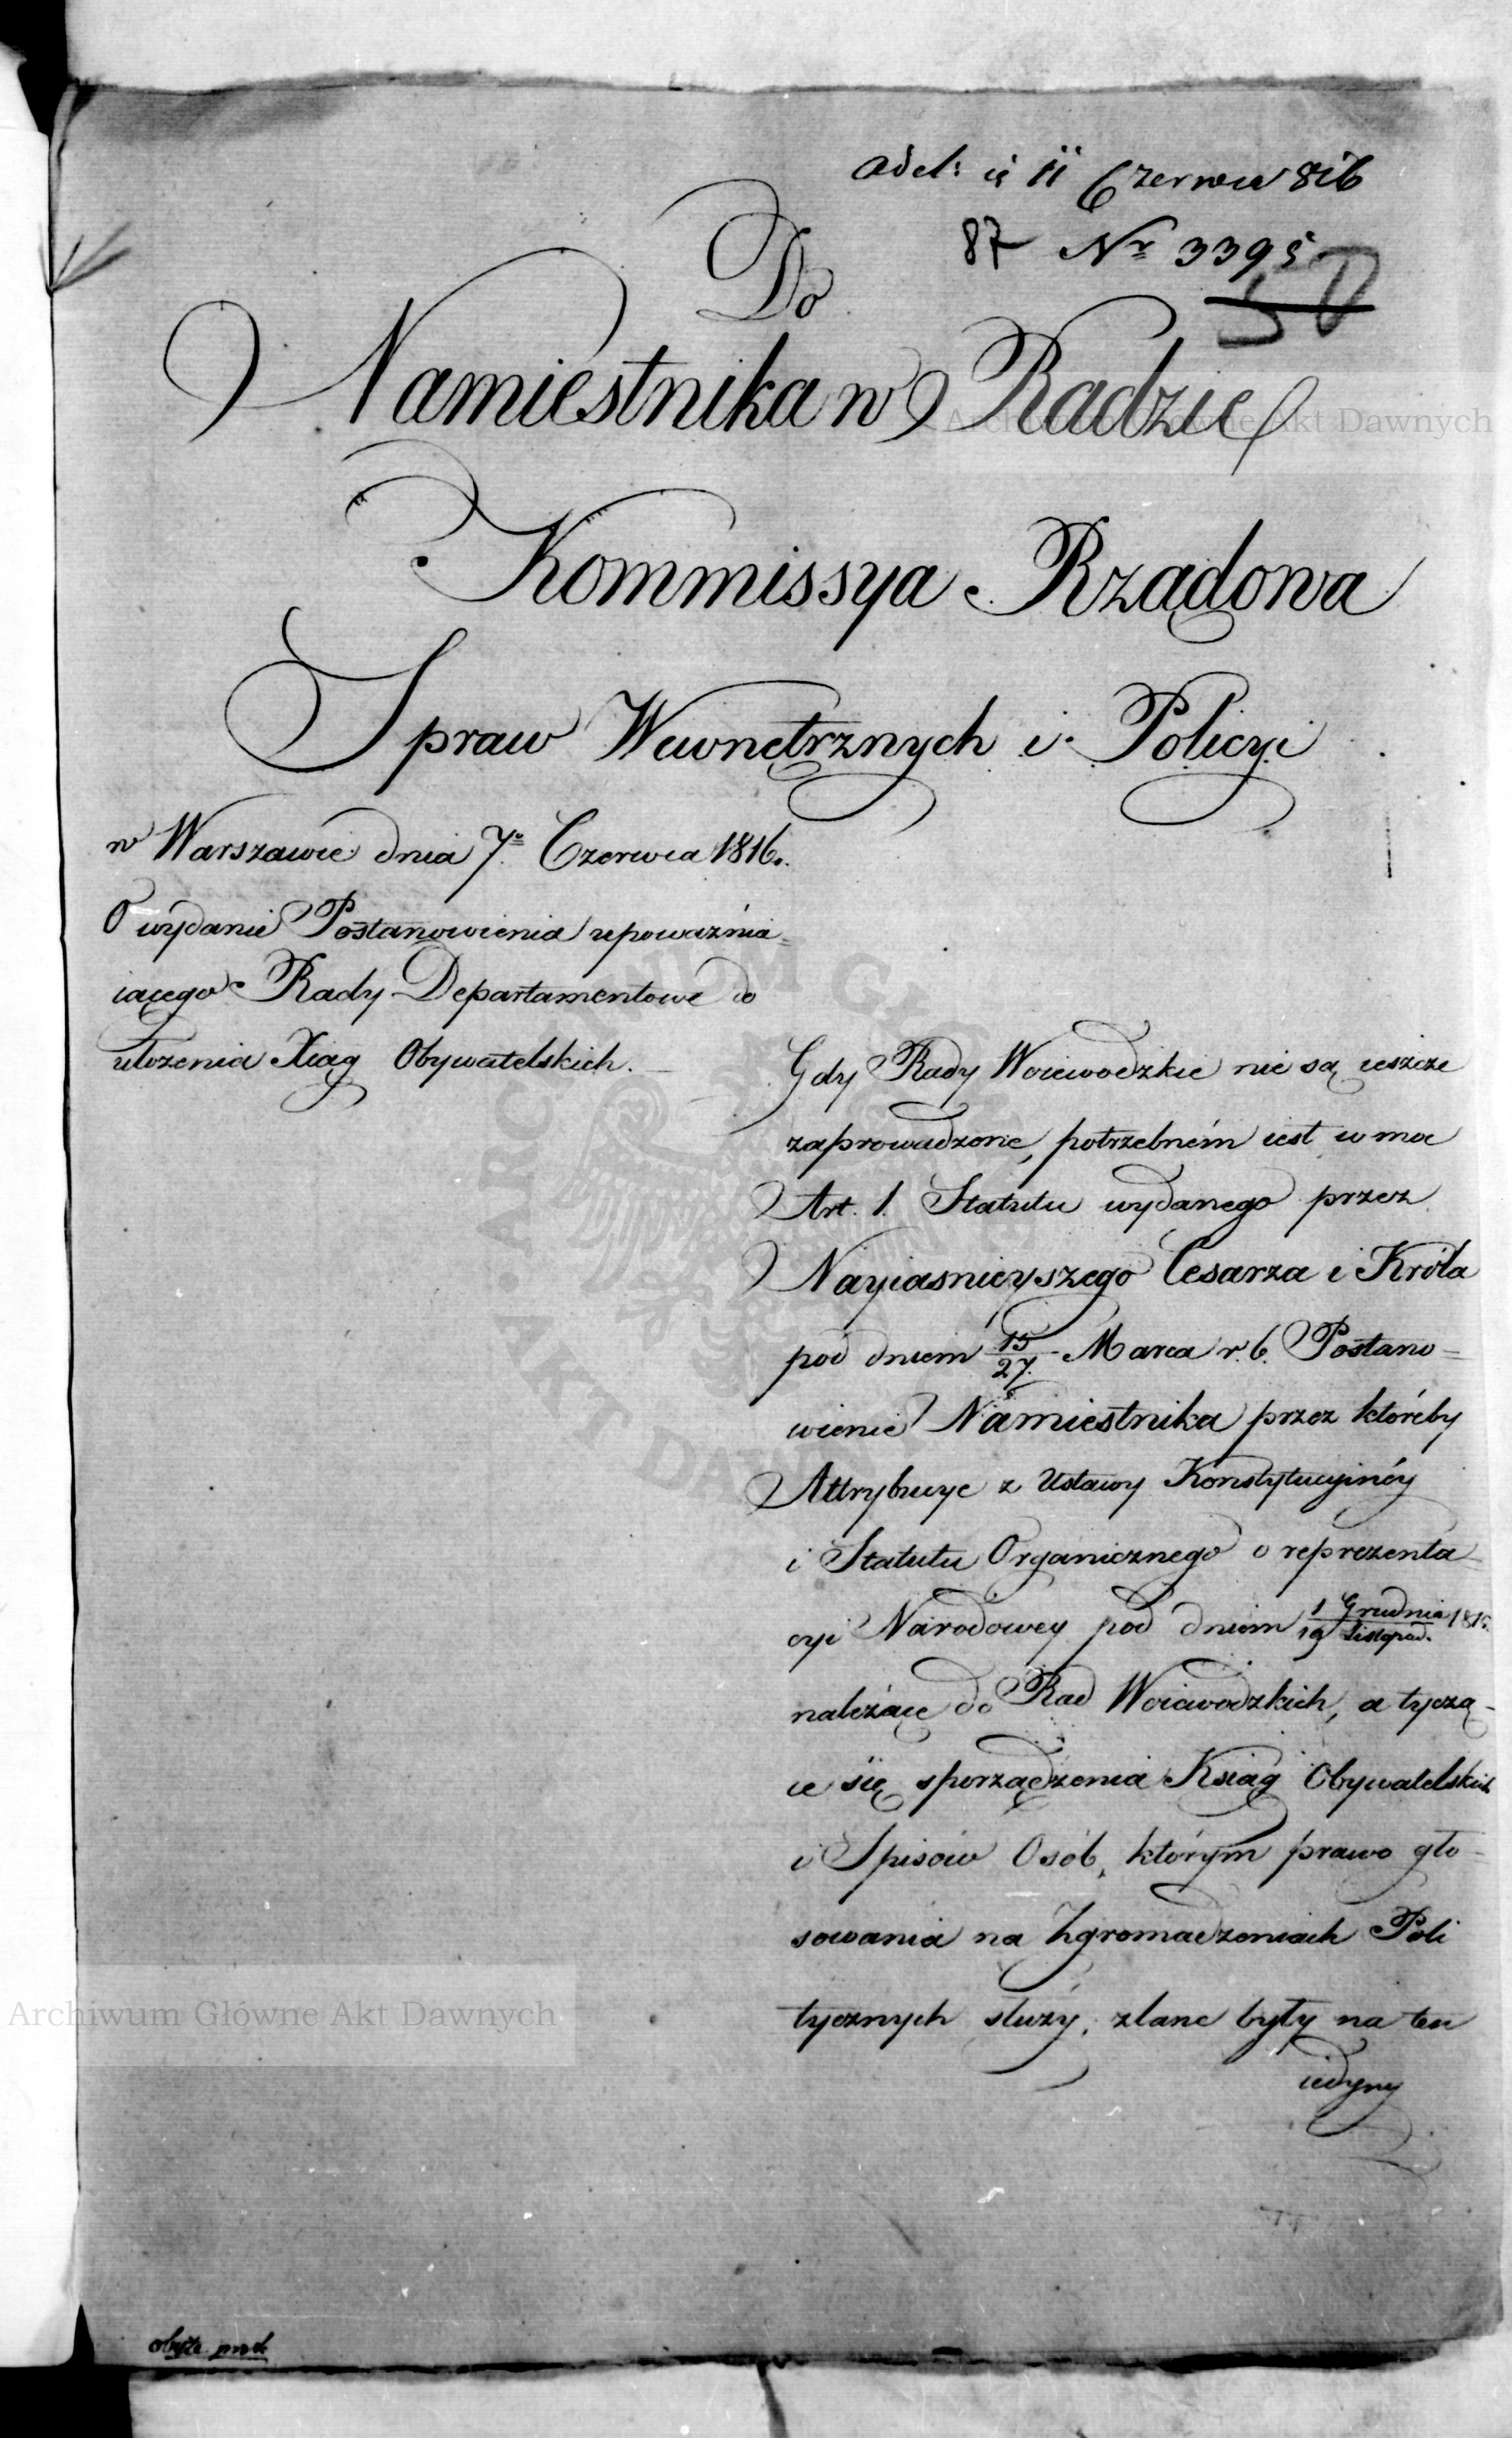 Odeb: d 11 Czerwca 816
87 Nr 3395
50
Do
Namiestnika w Radzie
Kommissya Rządowa
Spraw Wewnętrznych i Policyi
w Warszawie dnia 7º Czerwca 1816.
O wydanie Postanowienia upoważnia=
iącego Rady Departamentowe do
ułożenia Xiąg Obywatelskich.
Gdy Rady Woiewodzkie nie są ieszcze
zaprowadzone, potrzebném iest w moc
Art. 1. Statutu wydanego przez
Nayiasnieyszego Cesarza i Króla
pod dniem 15/27. Marca r. b. Postano=
wienie Namiestnika przez któreby
Attrybucye z Ustawy Konstytucyinéy
i Statutu Organicznego o reprezenta=
cyi Narodowey pod dniem 1 Grudnia/19 Listopad. 1815.
należące do Rad Woiewodzkich, a tyczą-
ce się sporządzenia Ksiąg Obywatelskich
i Spisów Osób, którym prawo gło-
sowania na Zgromadzeniach Poli
tycznych służy, zlane były na ten
iedyny
Archiwum Główne Akt Dawnych
Archiwum Główne Akt Dawnych
ARCHIWUM GŁÓWNE AKT DAWNYCH